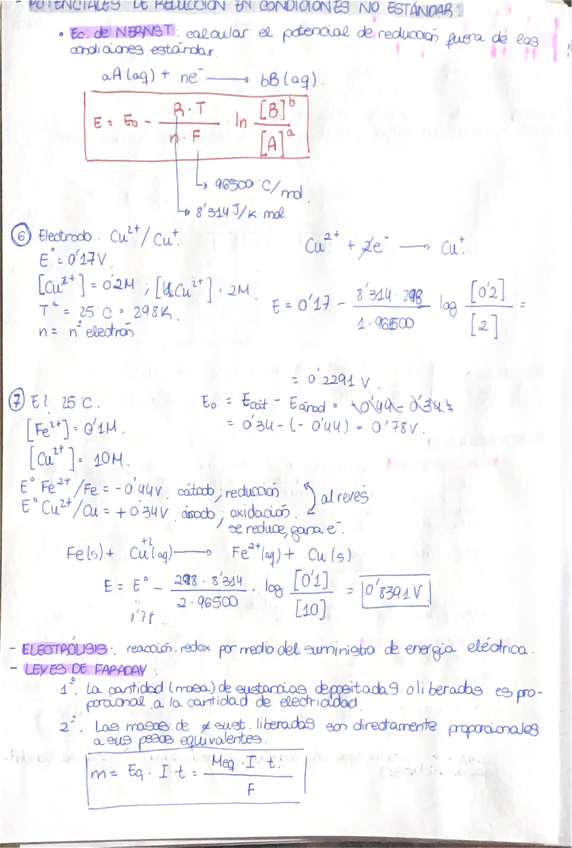 POTENCIALES DE REDUCCIÓN EN CONDICIONES NO ESTÁNDAR:
• Ec. de NERNST: calcular el potencial de reducción fuera de las
condiciones estándar.
aA(aq) + ne⁻ ⟶ bB(aq).
E = E₀ - R·T / n·F · ln [B]ᵇ / [A]ᵃ
↳ 96500 C/mol.
↳ 8'314 J/K mol
⑥ Electrodo: Cu²⁺/Cu⁺.
Cu²⁺ + e⁻ ⟶ Cu⁺.
E° = 0'17V.
[Cu²⁺] = 0'2M, [Cu²⁺] = 2M.
E = 0'17 - 8'314·298 / 1·96500 log [0'2] / [2] =
Tª = 25°C = 298K.
n = nº electrón
= 0'2291 V.
⑦ E? 25°C.
E₀ = Ecát - Eánod = 0'44 - 0'34 =
= 0'34 - (-0'44) = 0'78V.
[Fe²⁺] = 0'1M.
[Cu²⁺] = 10M.
E° Fe²⁺/Fe = -0'44V. cátodo, reducción
E° Cu²⁺/Cu = +0'34V. ánodo, oxidación.
al revés
se reduce, gana e⁻.
Fe(s) + Cu⁺²(aq) ⟶ Fe²⁺(aq) + Cu(s)
E = E° - 298·8'314 / 2·96500 · log [0'1] / [10] = 0'8391 V
- ELECTRÓLISIS: reacción redox por medio del suministro de energía eléctrica.
- LEYES DE FARADAY:
1º. La cantidad (masa) de sustancias depositadas o liberadas es pro-
porcional a la cantidad de electricidad.
2º. Las masas de ≠ sust. liberadas son directamente proporcionales
a sus pesos equivalentes.
m = Eq · I · t = Meq · I · t. / F